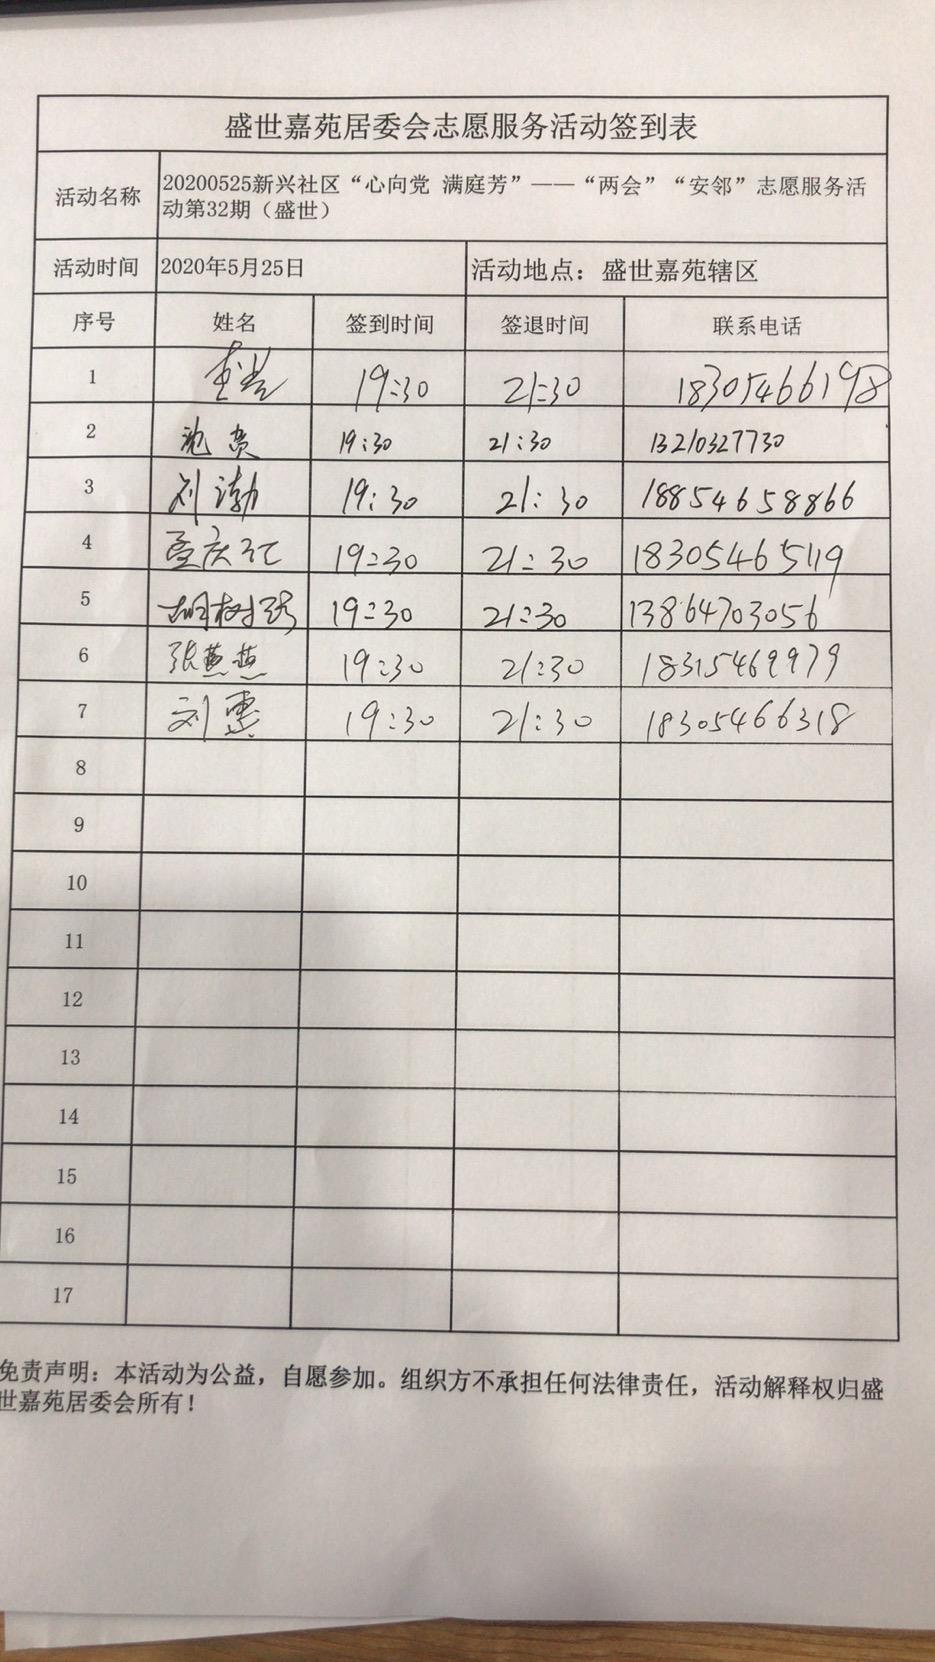 盛世嘉苑居委会志愿服务活动签到表
活动名称 20200525新兴社区“心向党 满庭芳”——“两会”“安邻”志愿服务活
动第32期（盛世）
活动时间 2020年5月25日 活动地点：盛世嘉苑辖区
序号 姓名 签到时间 签退时间 联系电话
1 19:30 21:30 18305466198
2 19:30 21:30 13210327730
3 刘渤 19:30 21:30 18854658866
4 孟庆江 19:30 21:30 18305465119
5 胡树 19:30 21:30 13864703056
6 张燕燕 19:30 21:30 18315469979
7 刘惠 19:30 21:30 18305466318
8
9
10
11
12
13
14
15
16
17
免责声明：本活动为公益，自愿参加。组织方不承担任何法律责任，活动解释权归盛
世嘉苑居委会所有！